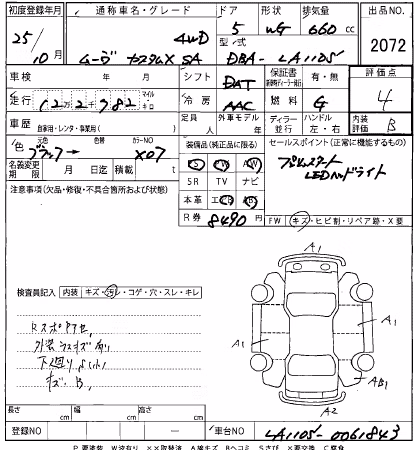 初度登録年月 通称車名・グレード ドア 形状 排気量 出品NO.
25/10月 ムーヴ カスタムX SA 4WD 5 WG 660cc 2072
型・式 DBA-LA110S
車検 年 月 シフト DAT 保証書 有・無 評価点
走行 122982 マイル キロ 冷房 AAC 燃料 G 4
車歴 自家用・レンタ・事業用( ) 定員 人 外車モデル 年 ディーラー 並行 ハンドル 左・右 内装評価 B
色 元色 ブラック→ 色替 カラーNO X07 装備品(純正品に限る) セールスポイント(正常に機能するもの)
PS PW AW プッシュスタート
LEDヘッドライト
名義変更期限 月 日迄 積載 t SR TV ナビ
注意事項(欠品・修復・不具合箇所および状態) 本革 エアB ABS
R券 8490円 FW キズ・ヒビ割・リペア跡・X要
A1
検査員記入 内装 キズ・汚レ・コゲ・穴・スレ・キレ
外装うすキズ有り
A1 A1
下廻りサビ小
キズ、B、
AB1
A2
長さ cm 幅 cm 高さ cm
登録NO ― 車台NO LA110S-0061843
P 要塗装 W 波有り XX 取替済 A 線キズ B ヘコミ S さび X 要交換 C 腐食